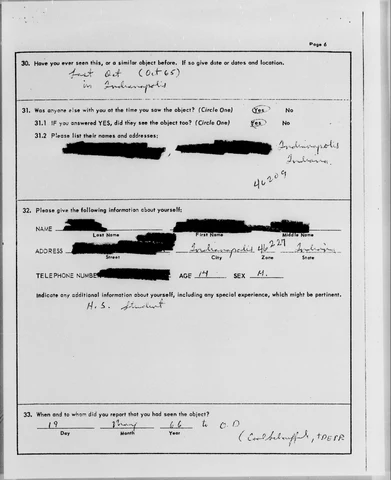 Page 6
30. Have you ever seen this, or a similar object before. If so give date or dates and location.
Last Oct (Oct 65)
in Indianapolis
31. Was anyone else with you at the time you saw the object? (Circle One) Yes No
31.1 IF you answered YES, did they see the object too? (Circle One) Yes No
31.2 Please list their names and addresses:
Indianapolis
Indiana
46209
32. Please give the following information about yourself:
NAME
Last Name First Name Middle Name
ADDRESS Indianapolis 46227 Indiana
Street City Zone State
TELEPHONE NUMBER AGE 14 SEX M.
Indicate any additional information about yourself, including any special experience, which might be pertinent.
H.S. Student
33. When and to whom did you report that you had seen the object?
19 May 66 to O.D
Day Month Year